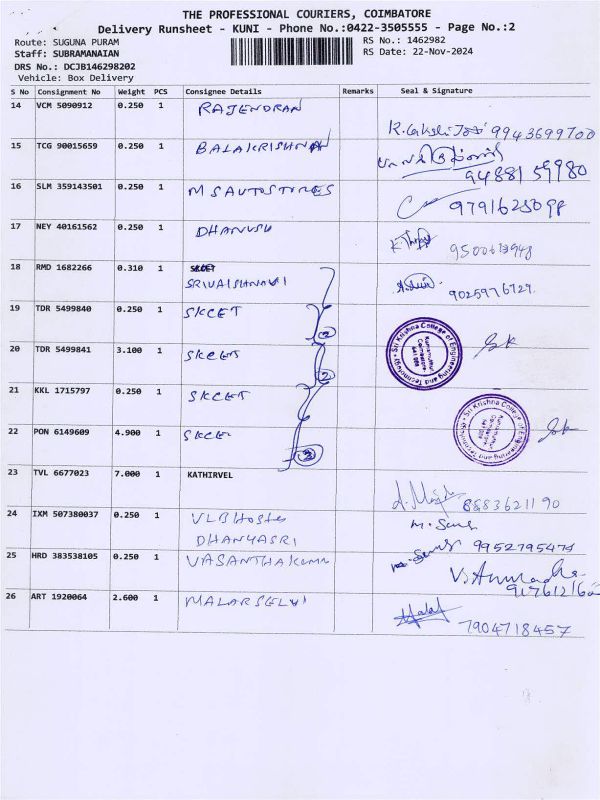 THE PROFESSIONAL COURIERS, COIMBATORE
Delivery Runsheet - KUNI - Phone No.:0422-3505555 - Page No.:2
Route: SUGUNA PURAM
RS No.: 1462982
Staff: SUBRAMANAIAN
RS Date: 22-Nov-2024
DRS No.: DCJB146298202
Vehicle: Box Delivery
S No Consignment No Weight PCS Consignee Details Remarks Seal & Signature
14 VCM 5090912 0.250 1 RAJENDRAN
9943699700
15 TCG 90015659 0.250 1 BALAKRISHNAN
9488159980
16 SLM 359143501 0.250 1 M S AUTOSTORES
9791625098
17 NEY 40161562 0.250 1 DHANUSH
18 RMD 1682266 0.310 1
SRIVAISHNAVI
9025976729
19 TDR 5499840 0.250 1 SKCET
2
Sri Krishna College of Engineering and Technology
Kuniamuthur
Coimbatore
641 008
20 TDR 5499841 3.100 1 SKCET
2
21 KKL 1715797 0.250 1 SKCET
Sri Krishna College of Engineering and Technology
22 PON 6149609 4.900 1 SKCE
23 TVL 6677023 7.000 1 KATHIRVEL
8883621190
24 IXM 507380037 0.250 1 VLB Hostes
DHANYASRI
9952795474
25 HRD 383538105 0.250 1 VASANTHAKUMAR
26 ART 1920064 2.600 1 MALARSELVI
7904718457